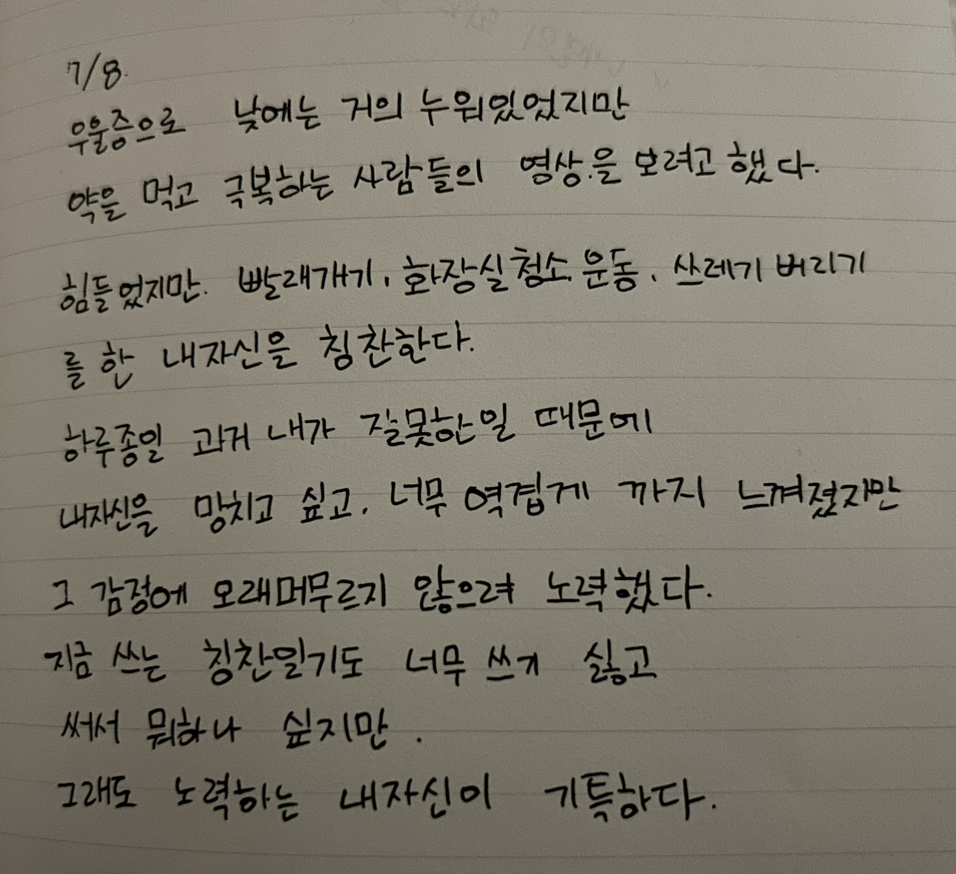 7/8.
우울증으로 낮에는 거의 누워있었지만
약을 먹고 극복하는 사람들의 영상을 보려고 했다.
힘들었지만. 빨래개기, 화장실청소, 운동, 쓰레기 버리기
를 한 내자신을 칭찬한다.
하루종일 과거 내가 잘못한일 때문에
내자신을 망치고 싶고, 너무 역겹게 까지 느껴졌지만
그 감정에 오래머무르지 않으려 노력했다.
지금 쓰는 칭찬일기도 너무 쓰기 싫고
써서 뭐하나 싶지만.
그래도 노력하는 내자신이 기특하다.